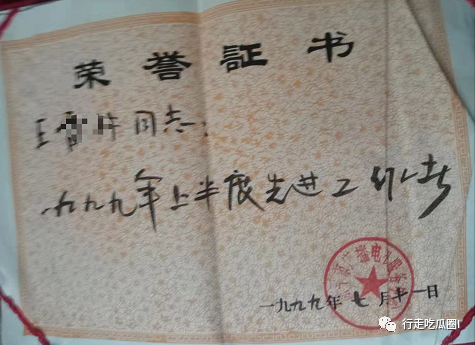 荣誉证书
王 同志:
一九九九年上半度先进工作者
一九九九年七月十一日
行走吃瓜圈I